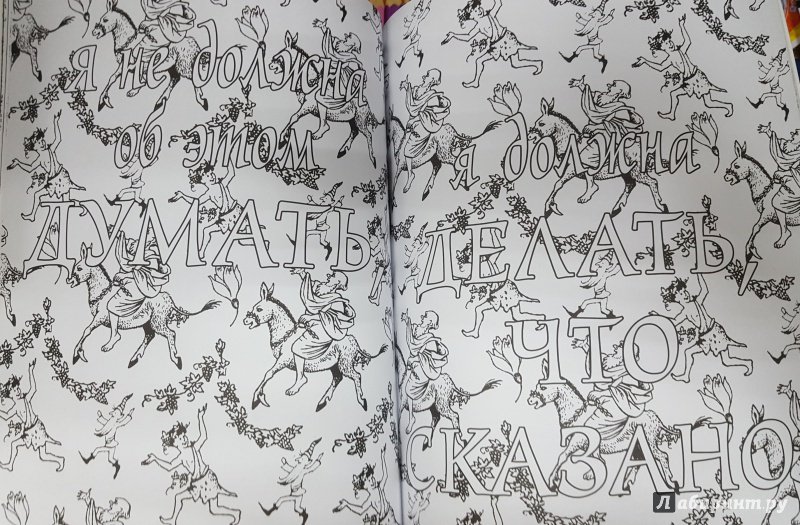 я не должна
об этом
ДУМАТЬ,
я должна
ДЕЛАТЬ,
ЧТО
СКАЗАНО
Лабиринт.ру